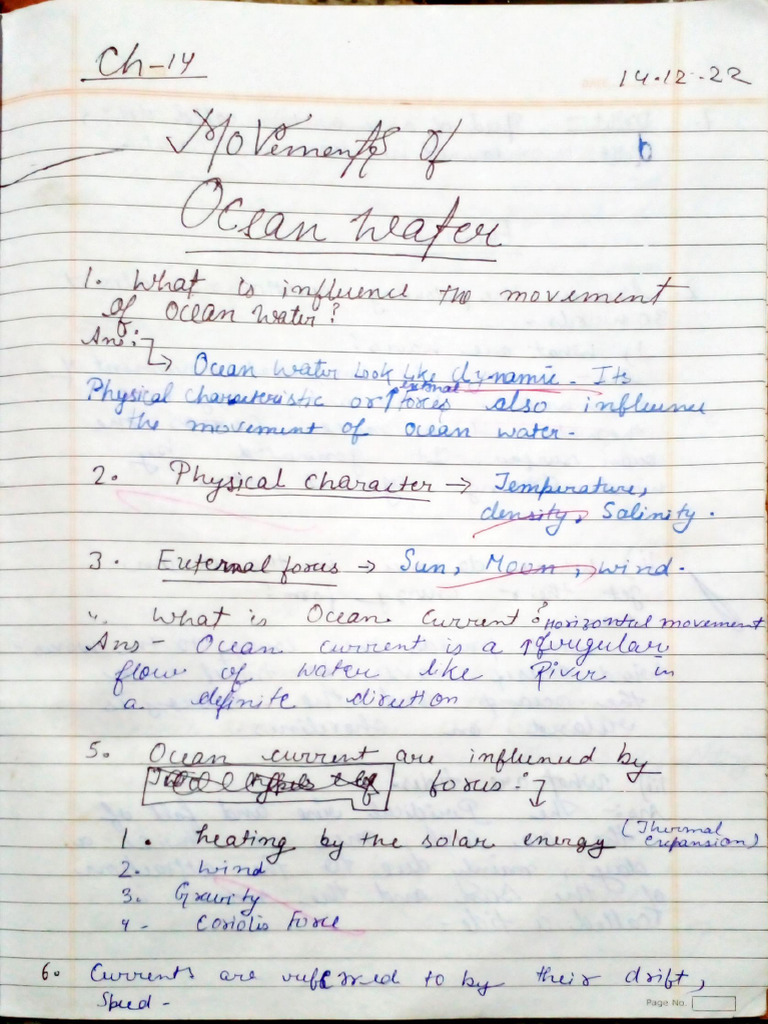 Ch-14
14.12.22
Movements of
b
Ocean water
1. What is influence the movement
of Ocean Water?
Ans:
→ Ocean Water Look like dynamic. Its
Physical characteristic or ↑ external forces also influence
the movement of ocean water.
2. Physical character → Temperature,
density, Salinity.
3. External forces → Sun, Moon, wind.
What is Ocean Current?
Horizontal movement
Ans - Ocean current is a ↑ of regular
flow of water like River in
a definite direction
5. Ocean current are influened by
forces:
1. heating by the solar energy (Thermal
expansion)
2. wind
3. Gravity
4. Coriolis Force
6. Currents are reffered to by their drift,
Speed -
Page No.